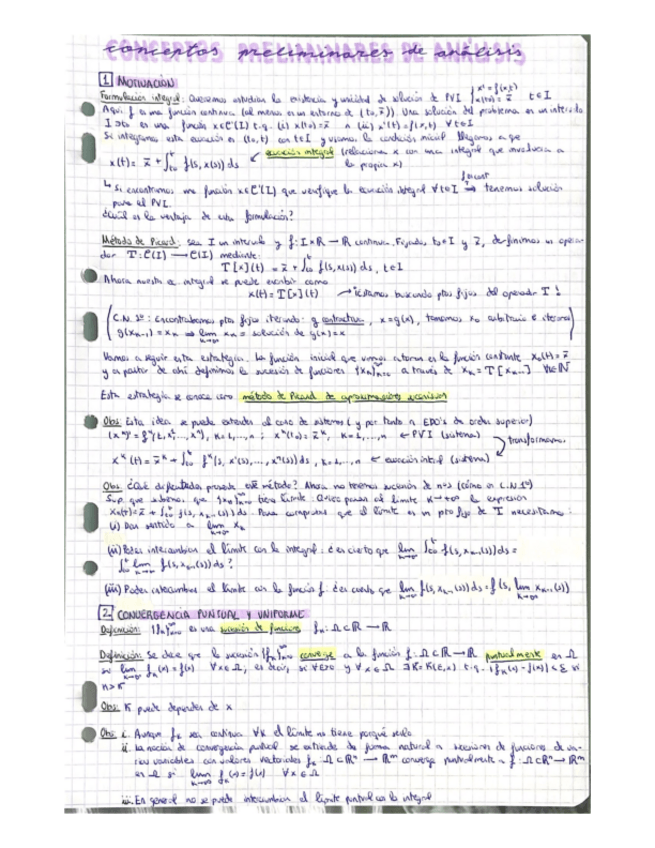 CONCEPTOS PRELIMINARES DE ANÁLISIS
1 MOTIVACIÓN
Formulación integral: Queremos estudiar la existencia y unicidad de solución de PVI { x' = f(x,t) x(t0) = x̄ t ∈ I
Aquí f es una función continua (al menos en un entorno de (t0, x̄)). Una solución del problema en un intervalo
I ∋ t0 es una función x ∈ C¹(I) t.q. (i) x(t0) = x̄ ∧ (ii) x'(t) = f(x,t) ∀t ∈ I
Si integramos esta ecuación en (t0, t) con t ∈ I y usamos la condición inicial llegamos a que
x(t) = x̄ + ∫_{t0}^{t} f(s, x(s)) ds ↙ ecuación integral (relaciona x con una integral que involucra a
la propia x)
↳ Si encontramos una función x ∈ C(I) que verifique la ecuación integral ∀t ∈ I ⇒ tenemos solución
f es cont
para el PVI.
¿Cuál es la ventaja de esta formulación?
Método de Picard: Sea I un intervalo y f: I×R → R continua. Fijados t0 ∈ I y x̄, definimos un opera-
dor T: C(I) → C(I) mediante:
T[x](t) = x̄ + ∫_{t0}^{t} f(s, x(s)) ds, t ∈ I
Ahora nuestra ec integral se puede escribir como
x(t) = T[x](t) → ¡Estamos buscando ptos fijos del operador T!
(C.N. 1º: Encontrábamos ptos fijos iterando: g contractiva, x = g(x), tomamos x0 arbitrario e iteramos
g(x_{k-1}) = x_k ⇒ lim_{k→∞} x_k = solución de g(x) = x)
Vamos a seguir esta estrategia. La función inicial que vamos a tomar es la función constante x0(t) = x̄
y a partir de ahí definimos la sucesión de funciones {x_k}_{k=0}^∞ a través de x_k = T[x_{k-1}] ∀k ∈ N
Esta estrategia se conoce como método de Picard de aproximaciones sucesivas
Obs: Esta idea se puede extender al caso de sistemas (y por tanto a EDO's de orden superior)
(x^k)' = f^k(t, x¹, ..., xⁿ), k=1,...,n ; x^k(t0) = x̄^k, k=1,...,n ← PVI (sistema)
transformamos
x^k(t) = x̄^k + ∫_{t0}^{t} f^k(s, x¹(s), ..., xⁿ(s)) ds, k=1,...,n ← ecuación integral (sistema)
Obs: ¿Qué dificultades presenta este método? Ahora no tenemos sucesión de nºs (como en C.N 1º)
Sup. que sabemos que {x_k}_{k=0}^∞ tiene límite. Quiero pasar al límite k→+∞ la expresión
x_k(t) = x̄ + ∫_{t0}^{t} f(s, x_{k-1}(s)) ds. Para comprobar que el límite es un pto fijo de T necesitamos:
(i) Dar sentido a lim_{k→∞} x_k
(ii) Poder intercambiar el límite con la integral: ¿es cierto que lim_{k→∞} ∫_{t0}^{t} f(s, x_{k-1}(s)) ds =
∫_{t0}^{t} lim_{k→∞} f(s, x_{k-1}(s)) ds?
(iii) Poder intercambiar el límite con la función f: ¿es cierto que lim_{k→∞} f(s, x_{k-1}(s)) ds = f(s, lim_{k→∞} x_{k-1}(s))
2 CONVERGENCIA PUNTUAL Y UNIFORME
Definición: {f_k}_{k=0}^∞ es una sucesión de funciones f_k: Ω ⊂ R → R
Definición: Se dice que la sucesión {f_k}_{k=0}^∞ converge a la función f: Ω ⊂ R → R puntualmente en Ω
si lim_{k→∞} f_k(x) = f(x) ∀x ∈ Ω, es decir, si ∀ε>0 y ∀x ∈ Ω ∃K̄ = K̄(ε,x) t.q. |f_k(x) - f(x)| < ε ∀k
k > K̄
Obs: K̄ puede depender de x
Obs: i. Aunque f_k sea continua ∀k el límite no tiene porqué serlo
ii. La noción de convergencia puntual se extiende de forma natural a sucesiones de funciones de va-
rias variables con valores vectoriales f_k: Ω ⊂ Rⁿ → Rᵐ converge puntualmente a f: Ω ⊂ Rⁿ → Rᵐ
en Ω si lim_{k→∞} f_k(x) = f(x) ∀x ∈ Ω
iii. En general no se puede intercambiar el límite puntual con la integral